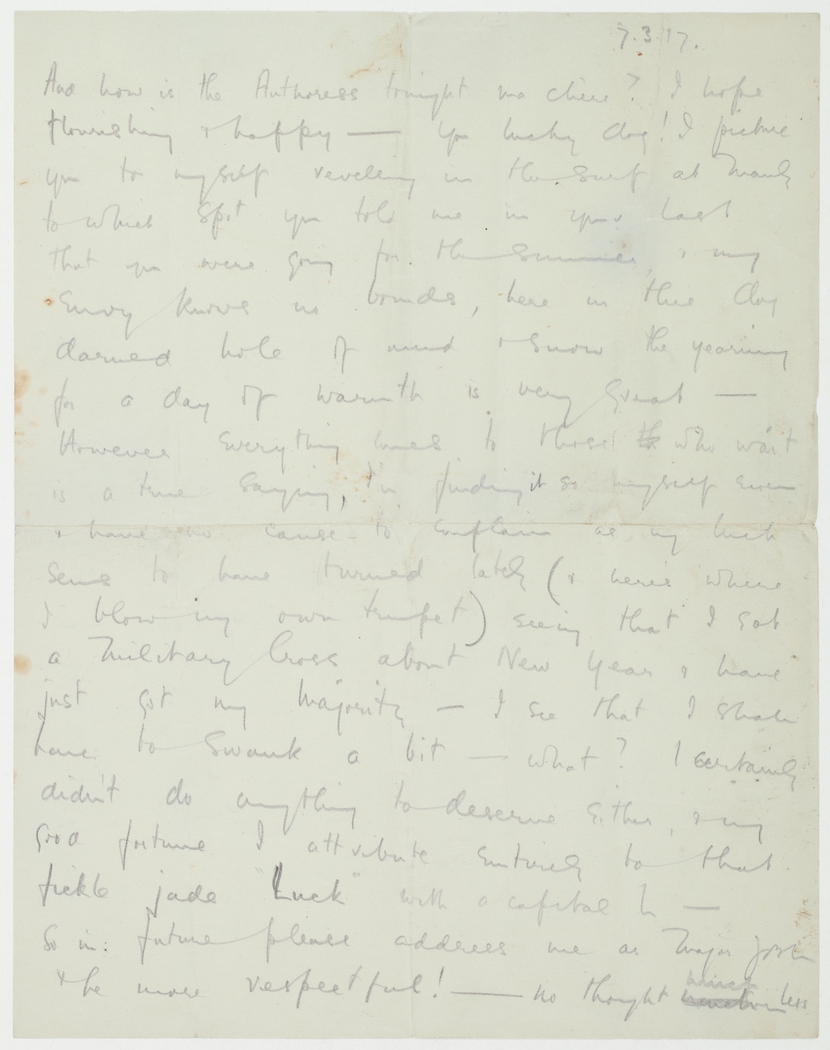 7.3.17.
And how is the Authoress tonight ma chère? I hope
flourishing & happy — you lucky dog! I picture
you to myself revelling in the surf at Manly
to which spot you told me in your last
that you were going for the summer, & my
Envy knows no bounds, here in this dog
darned hole of mud & snow the yearning
for a day of warmth is very great —
However Everything comes to those who wait
is a true saying, I'm finding it so myself even
& have no cause to complain as my luck
seems to have turned lately (& here's where
I blow my own trumpet) seeing that I got
a Military Cross about New Year & have
just got my Majority — I see that I shall
have to Swank a bit — what? I certainly
didn't do anything to deserve Either, & my
good fortune I attribute Entirely to that
fickle jade "Luck" with a capital L —
So in future please address me as Major
& be more respectful! — no thought less